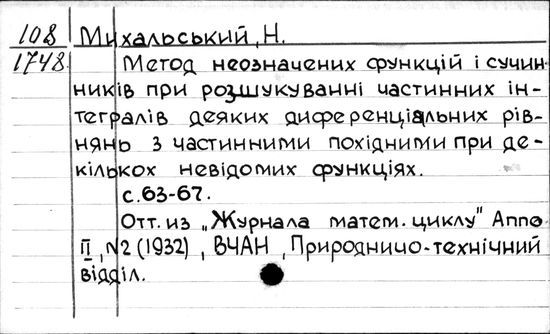 108 Михальський, Н.
1748 Метод неозначених функцій і сучин-
ників при розшукуванні частинних ін-
тегралів деяких диференціяльних рів-
нянь з частинними похідними при де-
кількох невідомих функціях.
с. 63-67.
Отт. из „Журнала матем. циклу"
II, №2 (1932), ВЧАН, Природничо-технічний
відділ.